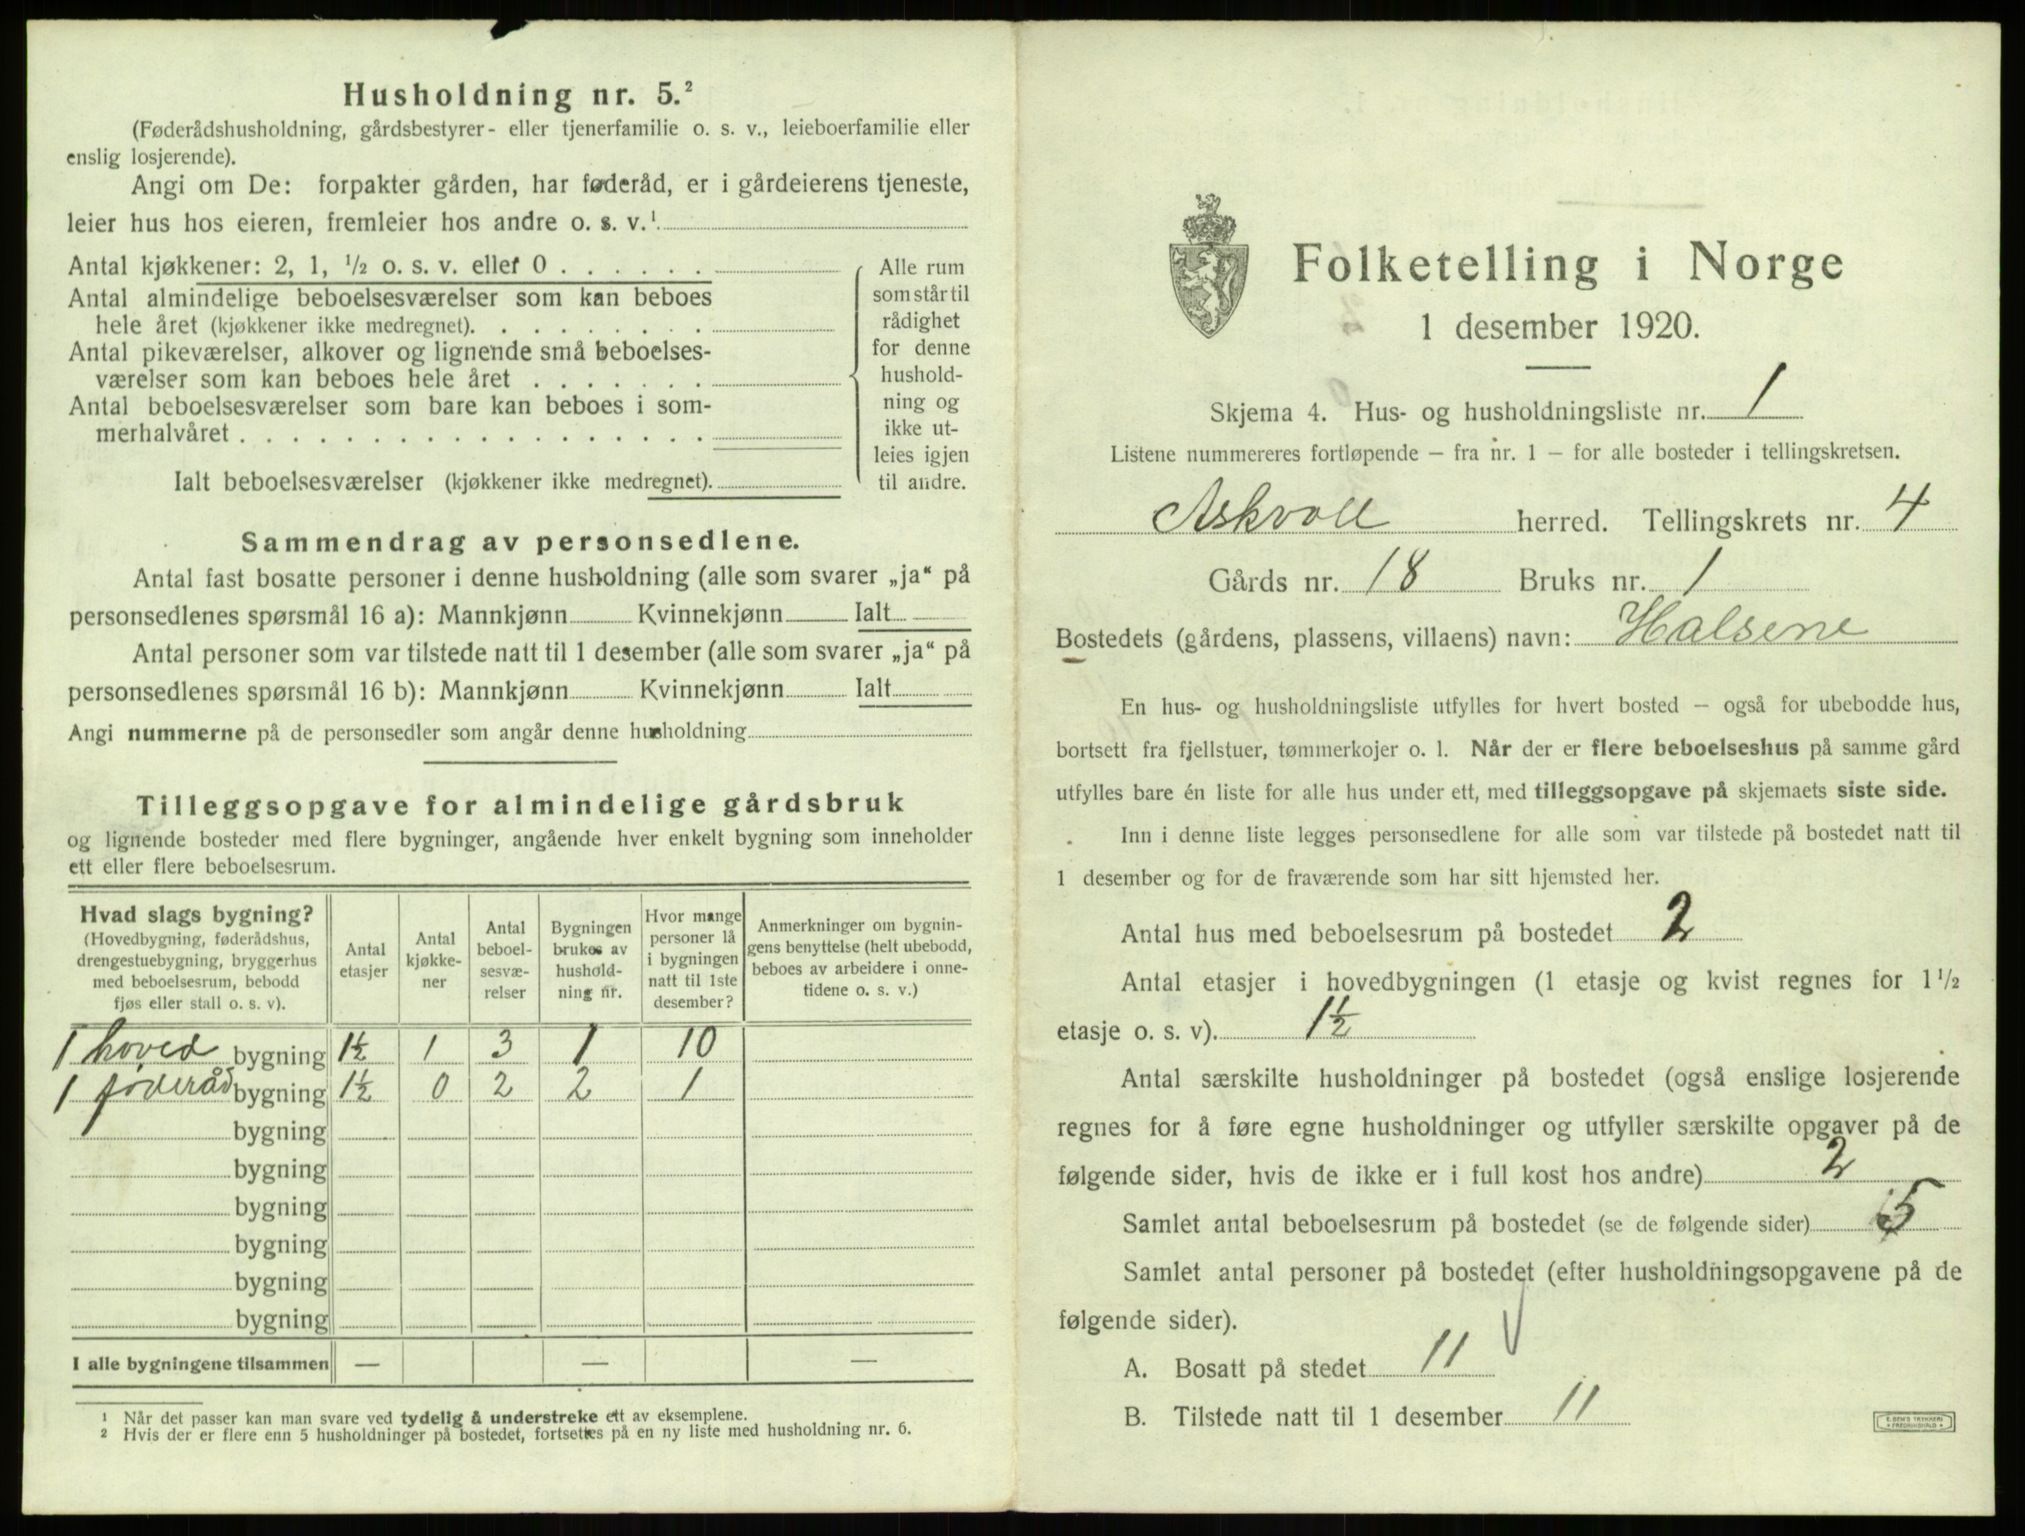 Husholdning nr. 5.²
(Føderådshusholdning, gårdsbestyrer- eller tjenerfamilie o. s. v., leieboerfamilie eller
enslig losjerende).
Angi om De: forpakter gården, har føderåd, er i gårdeierens tjeneste,
leier hus hos eieren, fremleier hos andre o. s. v.¹
Antal kjøkkener: 2, 1, ½ o. s. v. eller 0 . . . . . .
Antal almindelige beboelsesværelser som kan beboes
hele året (kjøkkener ikke medregnet). . . . . . . . .
Antal pikeværelser, alkover og lignende små beboelses-
værelser som kan beboes hele året . . . . . . .
Antal beboelsesværelser som bare kan beboes i som-
merhalvåret . . . . . . . . . . . . . . . . . .
Ialt beboelsesværelser (kjøkkener ikke medregnet).
Alle rum
som står til
rådighet
for denne
hushold-
ning og
ikke ut-
leies igjen
til andre.
Sammendrag av personsedlene.
Antal fast bosatte personer i denne husholdning (alle som svarer „ja“ på
personsedlenes spørsmål 16 a): Mannkjønn Kvinnekjønn Ialt
Antal personer som var tilstede natt til 1 desember (alle som svarer „ja“ på
personsedlenes spørsmål 16 b): Mannkjønn Kvinnekjønn Ialt
Angi nummerne på de personsedler som angår denne husholdning
Tilleggsopgave for almindelige gårdsbruk
og lignende bosteder med flere bygninger, angående hver enkelt bygning som inneholder
ett eller flere beboelsesrum.
Hvad slags bygning?
(Hovedbygning, føderådshus,
drengestuebygning, bryggerhus
med beboelsesrum, bebodd
fjøs eller stall o. s. v).
Antal
etasjer
Antal
kjøkke-
ner
Antal
beboel-
sesvæ-
relser
Bygningen
brukes av
hushold-
ning nr.
Hvor mange
personer lå
i bygningen
natt til 1ste
desember?
Anmerkninger om bygnin-
gens benyttelse (helt ubebodd,
beboes av arbeidere i onne-
tidene o. s. v.)
1 hoved bygning 1½ 1 3 1 10
1 føderåd bygning 1½ 0 2 2 1
bygning
bygning
bygning
bygning
bygning
bygning
I alle bygningene tilsammen — — —
¹ Når det passer kan man svare ved tydelig å understreke ett av eksemplene.
² Hvis der er flere enn 5 husholdninger på bostedet, fortsettes på en ny liste med husholdning nr. 6.
Folketelling i Norge
1 desember 1920.
Skjema 4. Hus- og husholdningsliste nr. 1
Listene nummereres fortløpende — fra nr. 1 — for alle bosteder i tellingskretsen.
Askvoll herred. Tellingskrets nr. 4
Gårds nr. 18 Bruks nr. 1
Bostedets (gårdens, plassens, villaens) navn: Halsene
En hus- og husholdningsliste utfylles for hvert bosted — også for ubebodde hus,
bortsett fra fjellstuer, tømmerkojer o. l. Når der er flere beboelseshus på samme gård
utfylles bare én liste for alle hus under ett, med tilleggsopgave på skjemaets siste side.
Inn i denne liste legges personsedlene for alle som var tilstede på bostedet natt til
1 desember og for de fraværende som har sitt hjemsted her.
Antal hus med beboelsesrum på bostedet 2
Antal etasjer i hovedbygningen (1 etasje og kvist regnes for 1 ½
etasje o. s. v). 1½
Antal særskilte husholdninger på bostedet (også enslige losjerende
regnes for å føre egne husholdninger og utfyller særskilte opgaver på de
følgende sider, hvis de ikke er i full kost hos andre) 2
Samlet antal beboelsesrum på bostedet (se de følgende sider) 5
Samlet antal personer på bostedet (efter husholdningsopgavene på de
følgende sider).
A. Bosatt på stedet 11
B. Tilstede natt til 1 desember 11